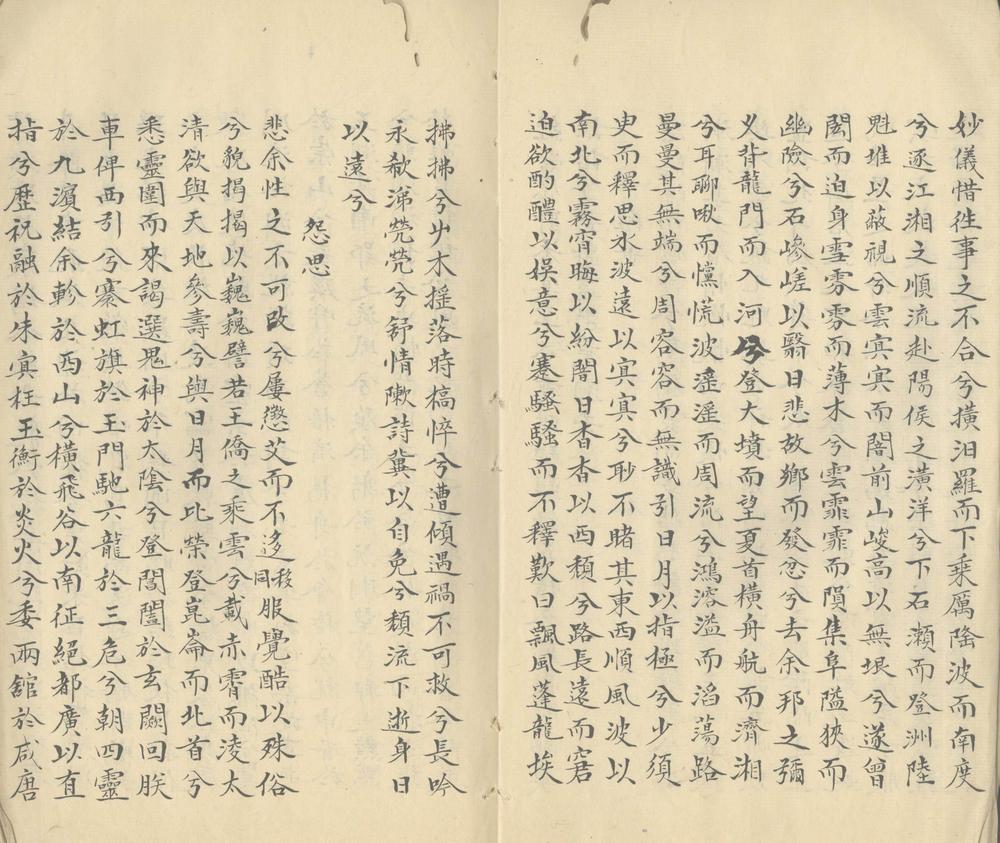 妙儀惜徃事之不合兮横汨羅而下乗厲隆波而南度
兮逐江湘之順流赴陽侯之潢洋兮下石瀬而登洲陸
魁堆以蔽視兮雲㝠㝠而闇前山峻高以無垠兮遂曾
閎而迫身雪雰雰而薄木兮雲霏霏而隕集阜隘狹而
幽險兮石嵾嵯以翳日悲故鄉而發忿兮去余邦之彌
乂背龍門而入河兮登大墳而望夏首横舟航而濟湘
兮耳聊啾而戃慌波滛滛而周流兮鴻溶溢而滔蕩路
曼曼其無端兮周容容而無識引日月以指極兮少須
史而釋思水波遠以㝠㝠兮眇不睹其東西順風波以
南北兮霧宵晦以紛闇日杳杳以西頽兮路長遠而窘
迫欲酌醴以娛意兮蹇騷騷而不釋歎曰飄風蓬龍埃
拂拂兮屮木摇落時槁悴兮遭傾遇禍不可救兮長吟
永欷涕㷀㷀兮舒情敶詩冀以自免兮頽流下逝身日
以遠兮
怨思
悲余性之不可改兮屢懲艾而不迻移同服覺酷以殊俗
兮貌揭揭以巍巍譬若王僑之乘雲兮載赤霄而淩太
清欲與天地參壽兮與日月而比榮登崑崙而北首兮
悉靈圉而來謁選鬼神於太陰兮登閶闔於玄闕回朕
車俾西引兮褰虹旗於玉門馳六龍於三危兮朝四靈
於九濱結余軫於西山兮横飛谷以南征絕都廣以直
指兮歷祝融於朱㝠枉玉衡於炎火兮委兩舘於咸唐